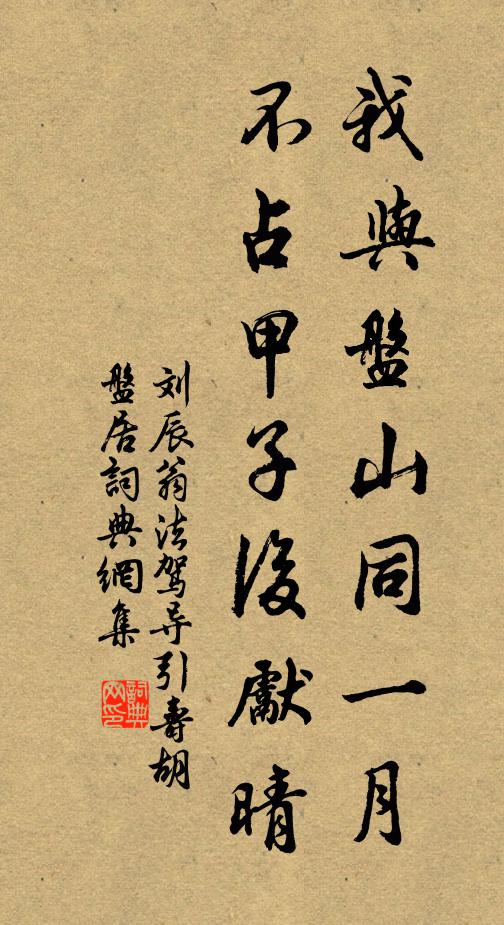 我與盤山同一月
不占甲子後獻晴
刘辰翁法驾导引壽胡
盤居詞典網集
詞典
网印